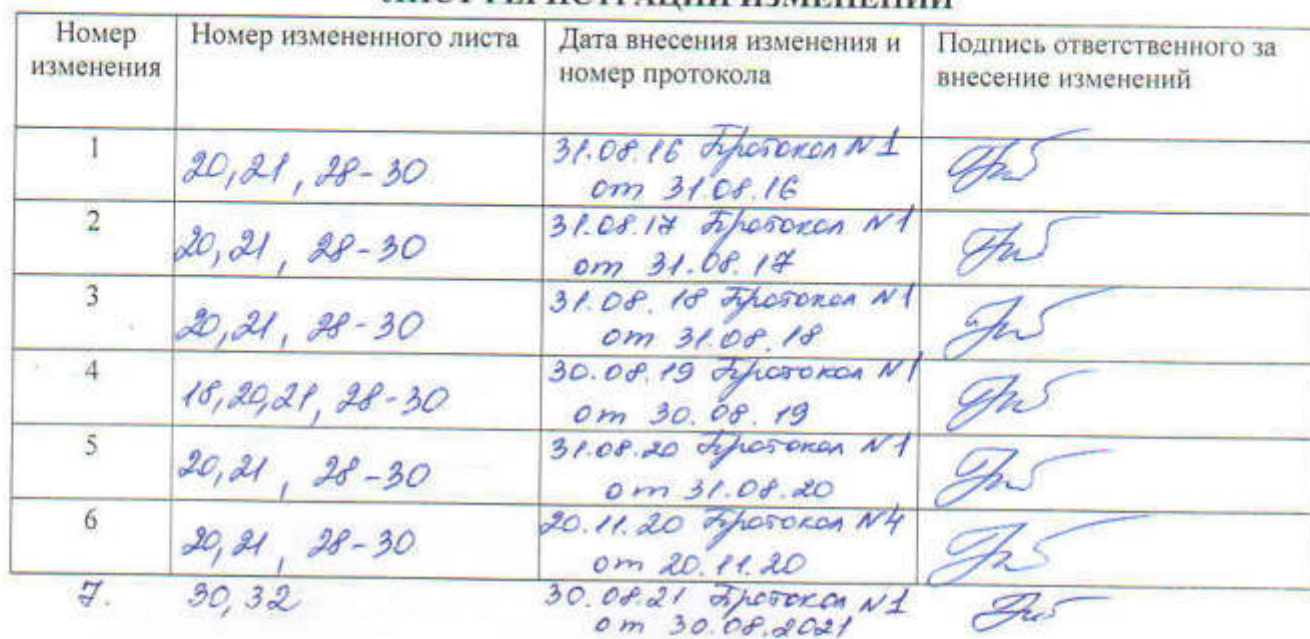 ЛИСТ РЕГИСТРАЦИИ ИЗМЕНЕНИЙ
Номер изменения
Номер измененного листа
Дата внесения изменения и номер протокола
Подпись ответственного за внесение изменений
1
20,21, 28-30
31.08.16 Протокол N1
от 31.08.16
2
20,21, 28-30
31.08.17 Протокол N1
от 31.08.17
3
20,21, 28-30
31.08.18 Протокол N1
от 31.08.18
4
18,20,21, 28-30
30.08.19 Протокол N1
от 30.08.19
5
20,21, 28-30
31.08.20 Протокол N1
от 31.08.20
6
20,21, 28-30
20.11.20 Протокол N4
от 20.11.20
7.
30,32
30.08.21 Протокол N1
от 30.08.2021